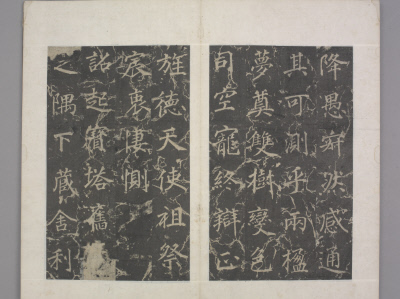 降愚寂然感通
其可測乎兩楹
夢奠雙樹變色
司空寵終辯正
旌德天使祖祭
宸衷悽惻
詔起寶塔舊
之隅下藏舍利